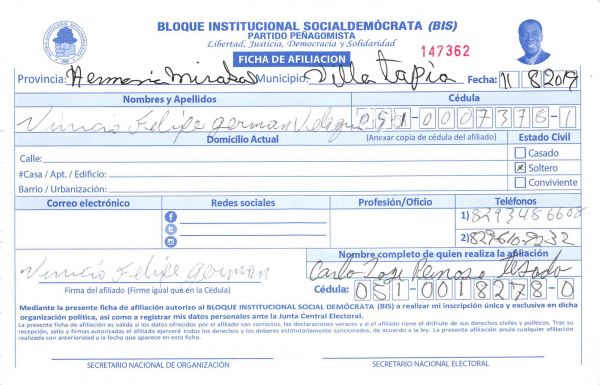 BLOQUE INSTITUCIONAL SOCIALDEMÓCRATA (BIS)
PARTIDO PEÑAGOMISTA
Libertad, Justicia, Democracia y Solidaridad
147362
FICHA DE AFILIACION
Provincia: Hermanas Mirabal Municipio: Villa Tapia Fecha: 11 8 2019
Nombres y Apellidos Cédula
Vinicio Felipe german 051-0007378-1
Domicilio Actual (Anexar copia de cédula del afiliado) Estado Civil
Calle: Casado
#Casa / Apt. / Edificio: X Soltero
Barrio / Urbanización: Conviviente
Correo electrónico Redes sociales Profesión/Oficio Teléfonos
1) 8293486608
2) 829-610-9232
Nombre completo de quien realiza la afiliación
Vinicio Felipe german Carlo Jose
Firma del afiliado (Firme igual que en la Cédula) Cédula: 051-0018278-0
Mediante la presente ficha de afiliación autorizo al BLOQUE INSTITUCIONAL SOCIAL DEMÓCRATA (BIS) a realizar mi inscripción única y exclusiva en dicha
organización política, así como a registrar mis datos personales ante la Junta Central Electoral.
La presente ficha de afiliación es válida si los datos ofrecidos por el afiliado son correctos, las declaraciones veraces y si el afiliado tiene el disfrute de sus derechos civiles y políticos. Tras su
recepción, sello y firmas autorizadas el afiliado ejercerá todos los derechos y los deberes estatutariamente sancionados, de acuerdo a la ley. La presente afiliación anula cualquier afiliación
realizada con anterioridad a la fecha que aparece en esta ficha.
SECRETARIO NACIONAL DE ORGANIZACIÓN SECRETARIO NACIONAL ELECTORAL